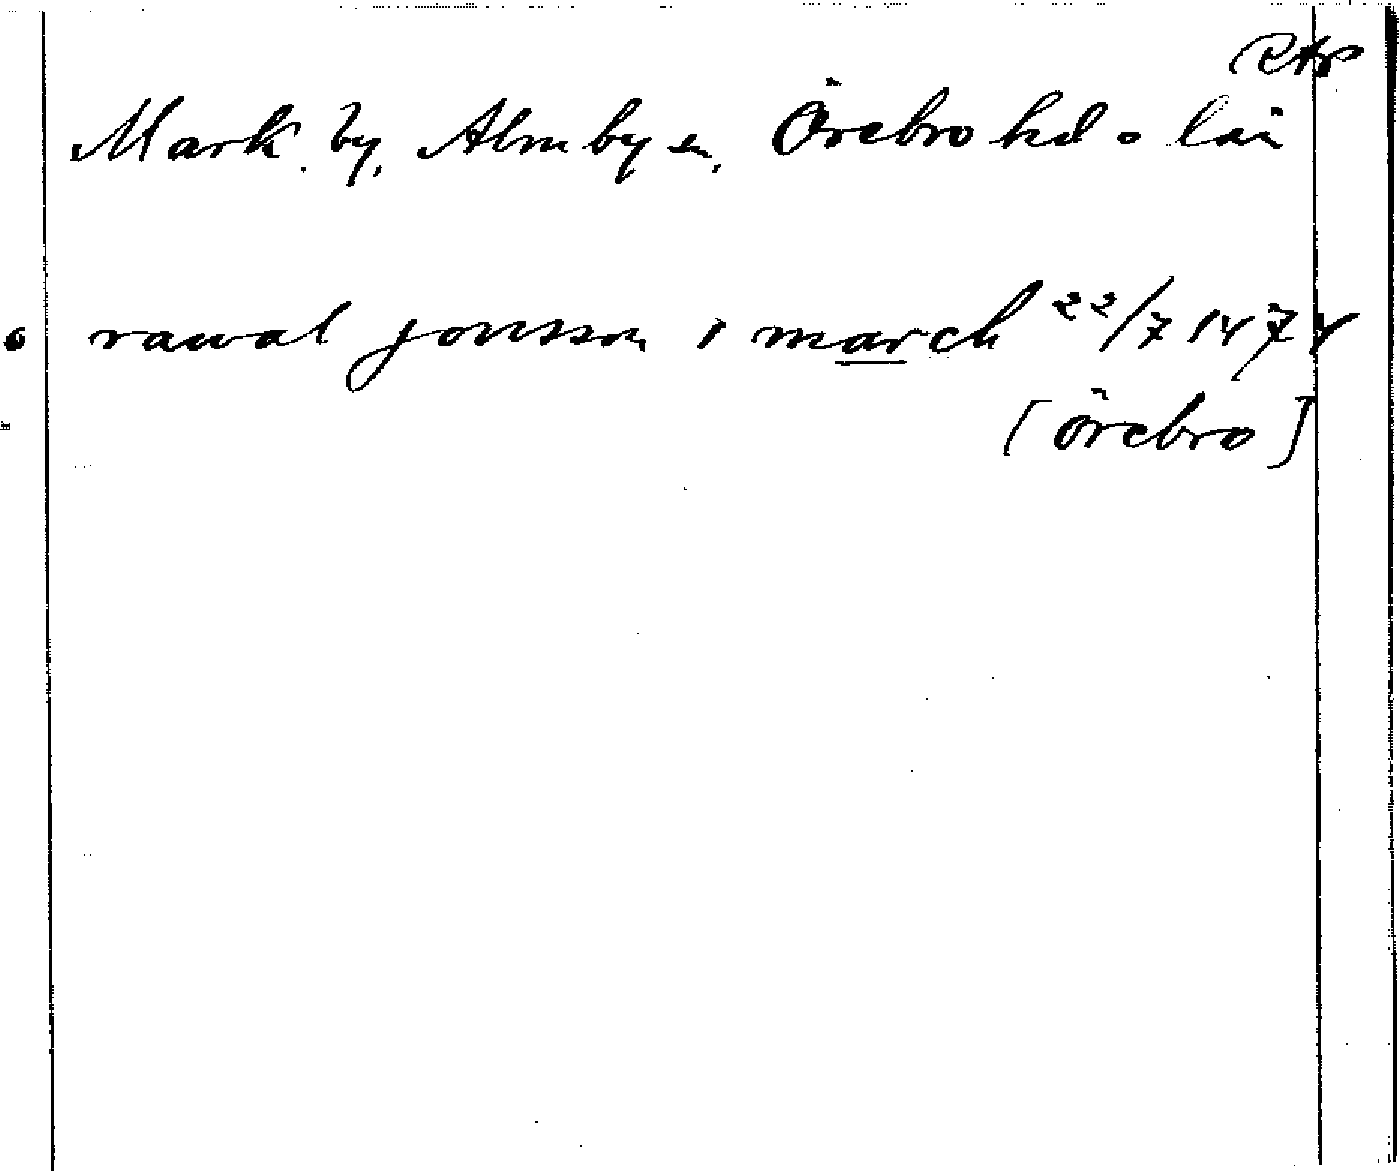 RAp
Mark. by, Almby sn, Örebro hd o län
o rawal jonsson i march 22/7 1474
[Örebro]